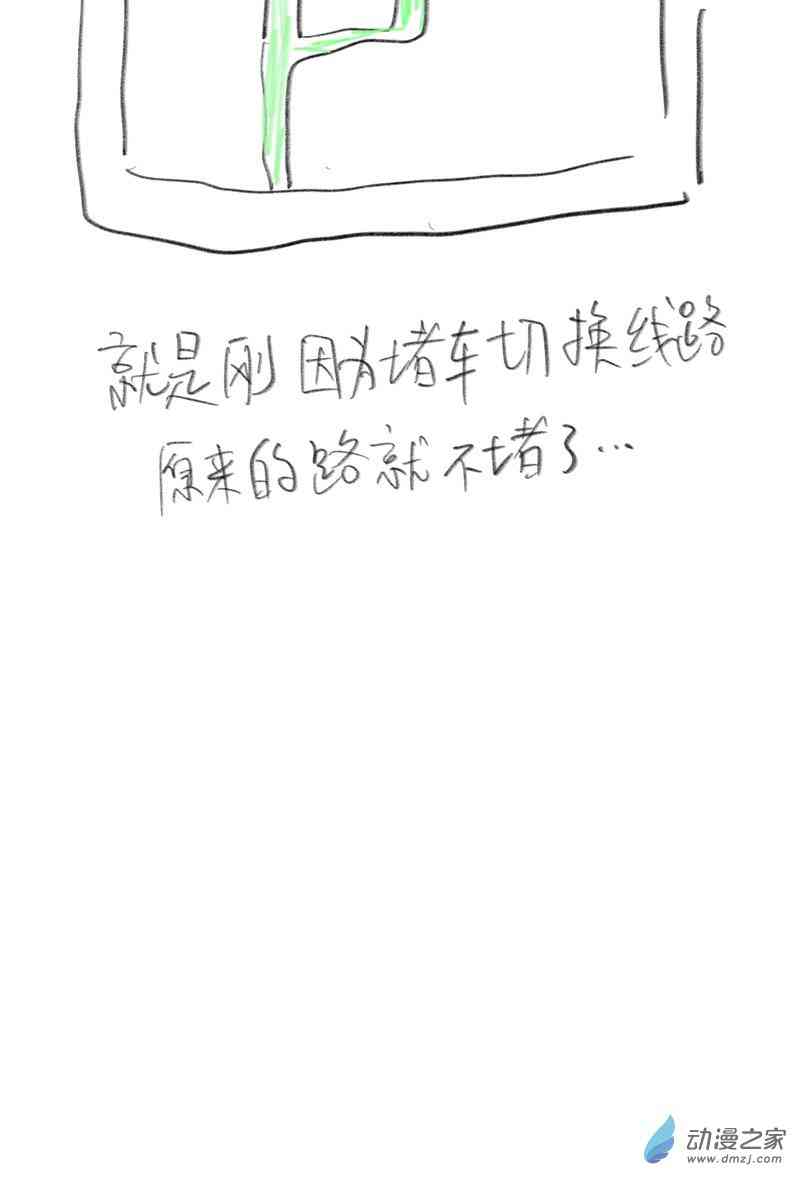 就是刚因为堵车切换线路
原来的路就不堵了...
动漫之家
www.dmzj.com